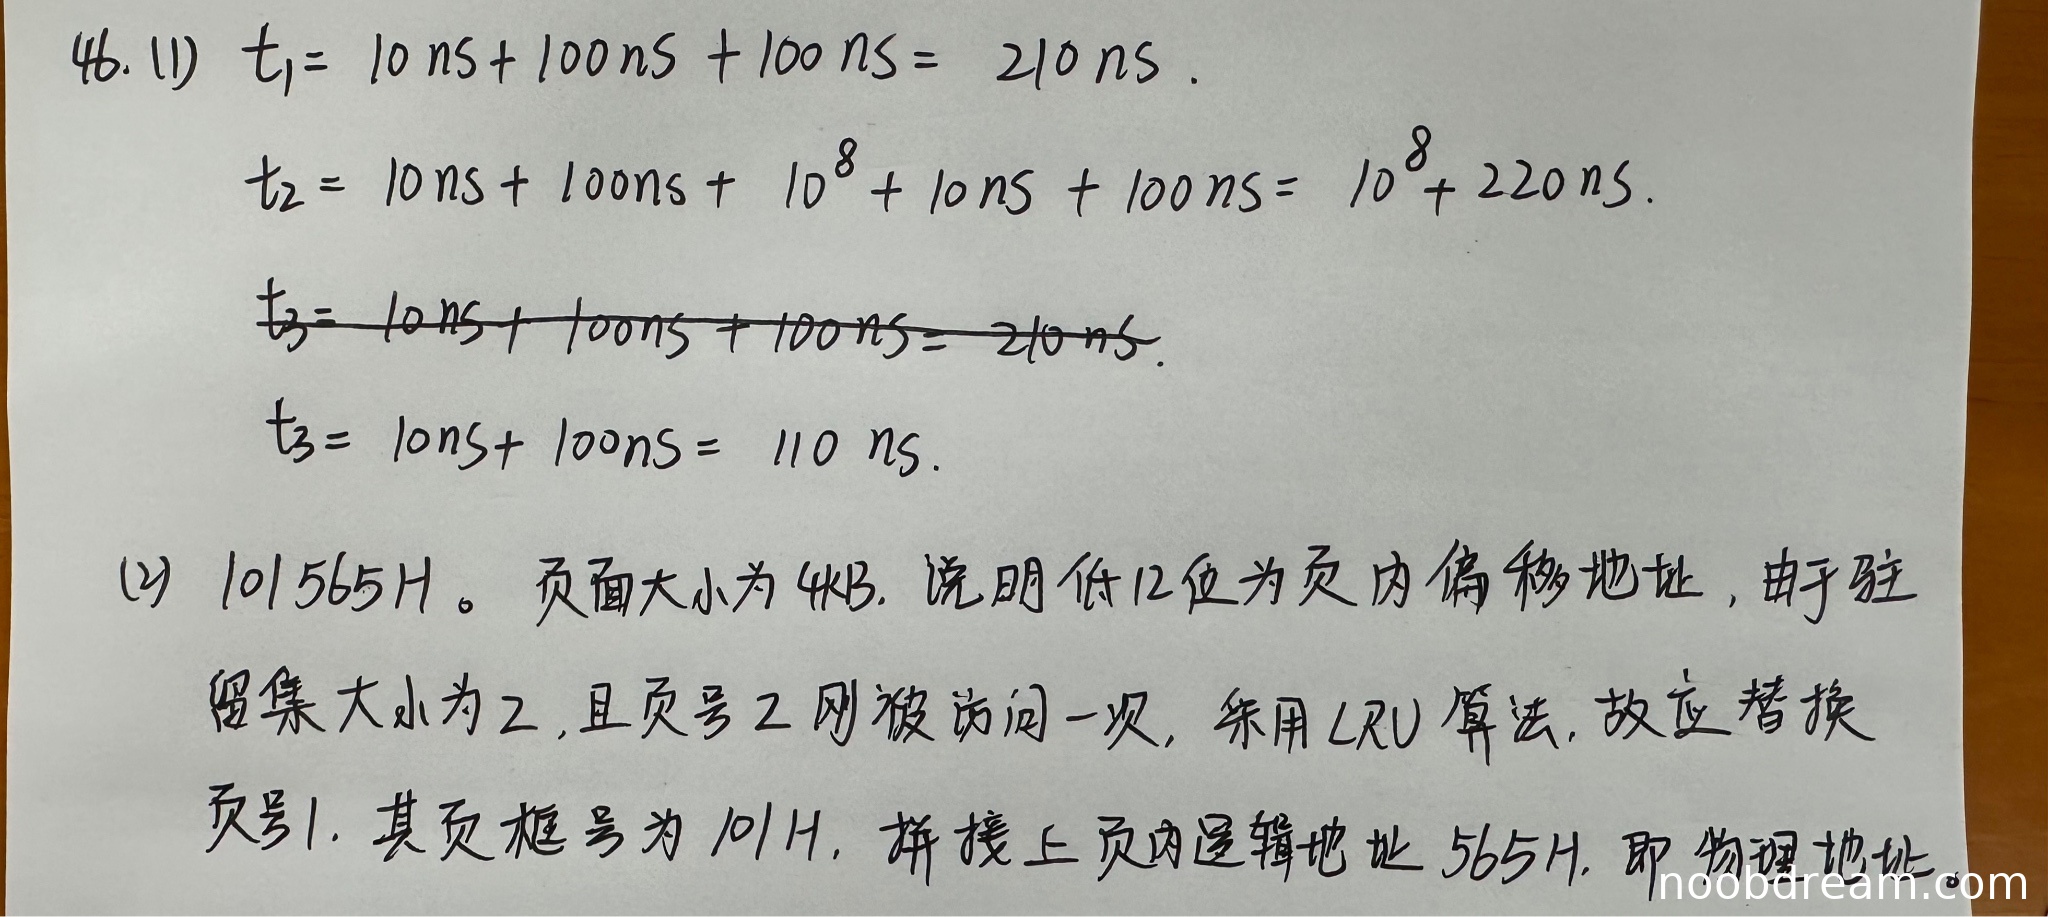 46. (1) t₁= 10ns+100ns+100ns= 210ns.
t₂= 10ns+100ns+10⁸+10ns+100ns= 10⁸+220ns.
t₃= 10ns+100ns+100ns= 210ns.
t₃= 10ns+100ns= 110 ns.
(2) 101565H。页面大小为4KB. 说明低12位为页内偏移地址, 由于驻
留集大小为2, 且页号2刚被访问一次, 采用LRU算法. 故应替换
页号1. 其页框号为101H. 拼接上页内逻辑地址565H. 即物理地址。
noobdream.com